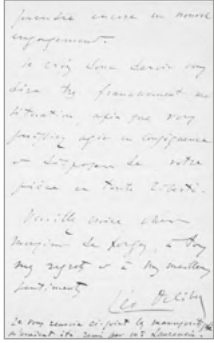 prendre encore un nouvel
engagement.
Je crois donc devoir vous
dire très franchement ma
situation, afin que vous
puissiez agir en conséquence
et disposer de votre
poème en toute liberté.
Veuillez croire, cher
Monsieur de, à tous
mes regrets et à mes meilleurs
sentiments
Léo Delibes
Je vous renvoie ci-joint le manuscrit
été remis par